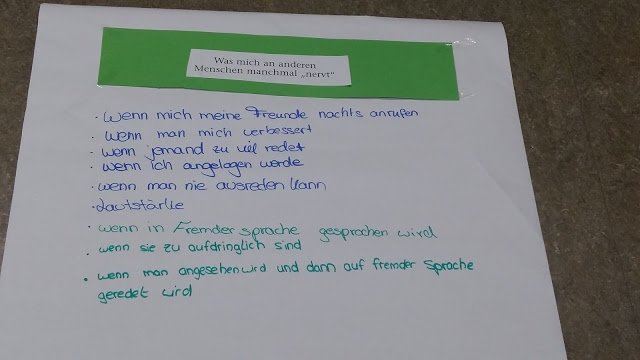 Was mich an anderen
Menschen manchmal „nervt“
· Wenn mich meine Freunde nachts anrufen
· wenn man mich verbessert
- wenn jemand zu viel redet
· wenn ich angelogen werde
· wenn man nie ausreden kann
· Lautstärke
· wenn in Fremder sprache gesprochen wird
· wenn sie zu aufdringlich sind
· wenn man angesehen wird und dann auf fremder Sprache
geredet wird